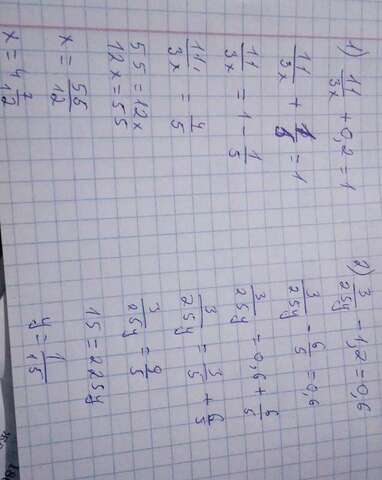 1) 11/3x + 0,2 = 1
11/3x + 1/5 = 1
11/3x = 1 - 1/5
11/3x = 4/5
55 = 12x
12x = 55
x = 55/12
x = 4 7/12
2) 3/25y - 1,2 = 0,6
3/25y - 6/5 = 0,6
3/25y = 0,6 + 6/5
3/25y = 3/5 + 6/5
3/25y = 9/5
15 = 225y
y = 1/15